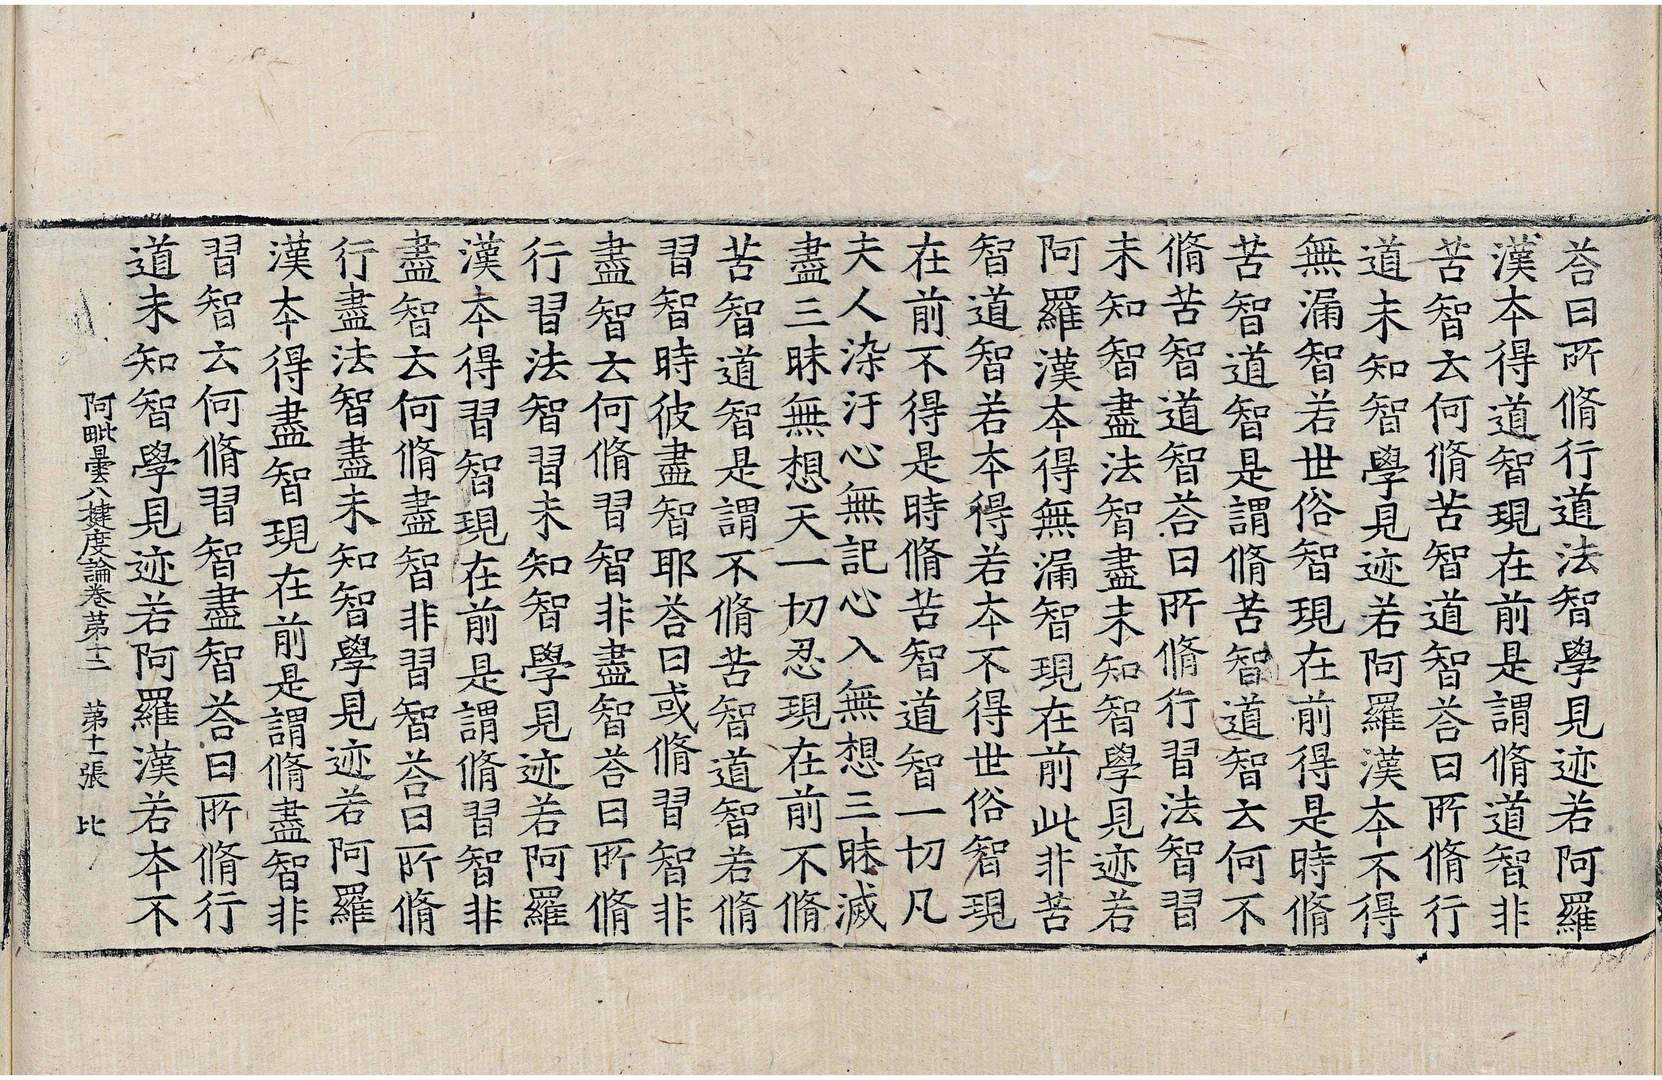 荅曰所脩行道法智學見迹若阿羅
漢本得道智現在前是謂脩道智非
苦智云何脩苦智道智荅曰所脩行
道未知智學見迹若阿羅漢本不得
無漏智若世俗智現在前得是時脩
苦智道智是謂脩苦智道智云何不
脩苦智道智荅曰所脩行習法智習
未知智盡法智盡未知智學見迹若
阿羅漢本得無漏智現在前此非苦
智道智若本得若本不得世俗智現
在前不得是時脩苦智道智一切凡
夫人染汙心無記心入無想三昧滅
盡三昧無想天一切忍現在前不脩
苦智道智是謂不脩苦智道智若脩
習智時彼盡智耶荅曰或脩習智非
盡智云何脩習智非盡智荅曰所脩
行習法智習未知智學見迹若阿羅
漢本得習智現在前是謂脩習智非
盡智云何脩盡智非習智荅曰所脩
行盡法智盡未知智學見迹若阿羅
漢本得盡智現在前是謂脩盡智非
習智云何脩習智盡智荅曰所脩行
道未知智學見迹若阿羅漢若本不
阿毗曇八揵度論卷第十二 第十一張 比